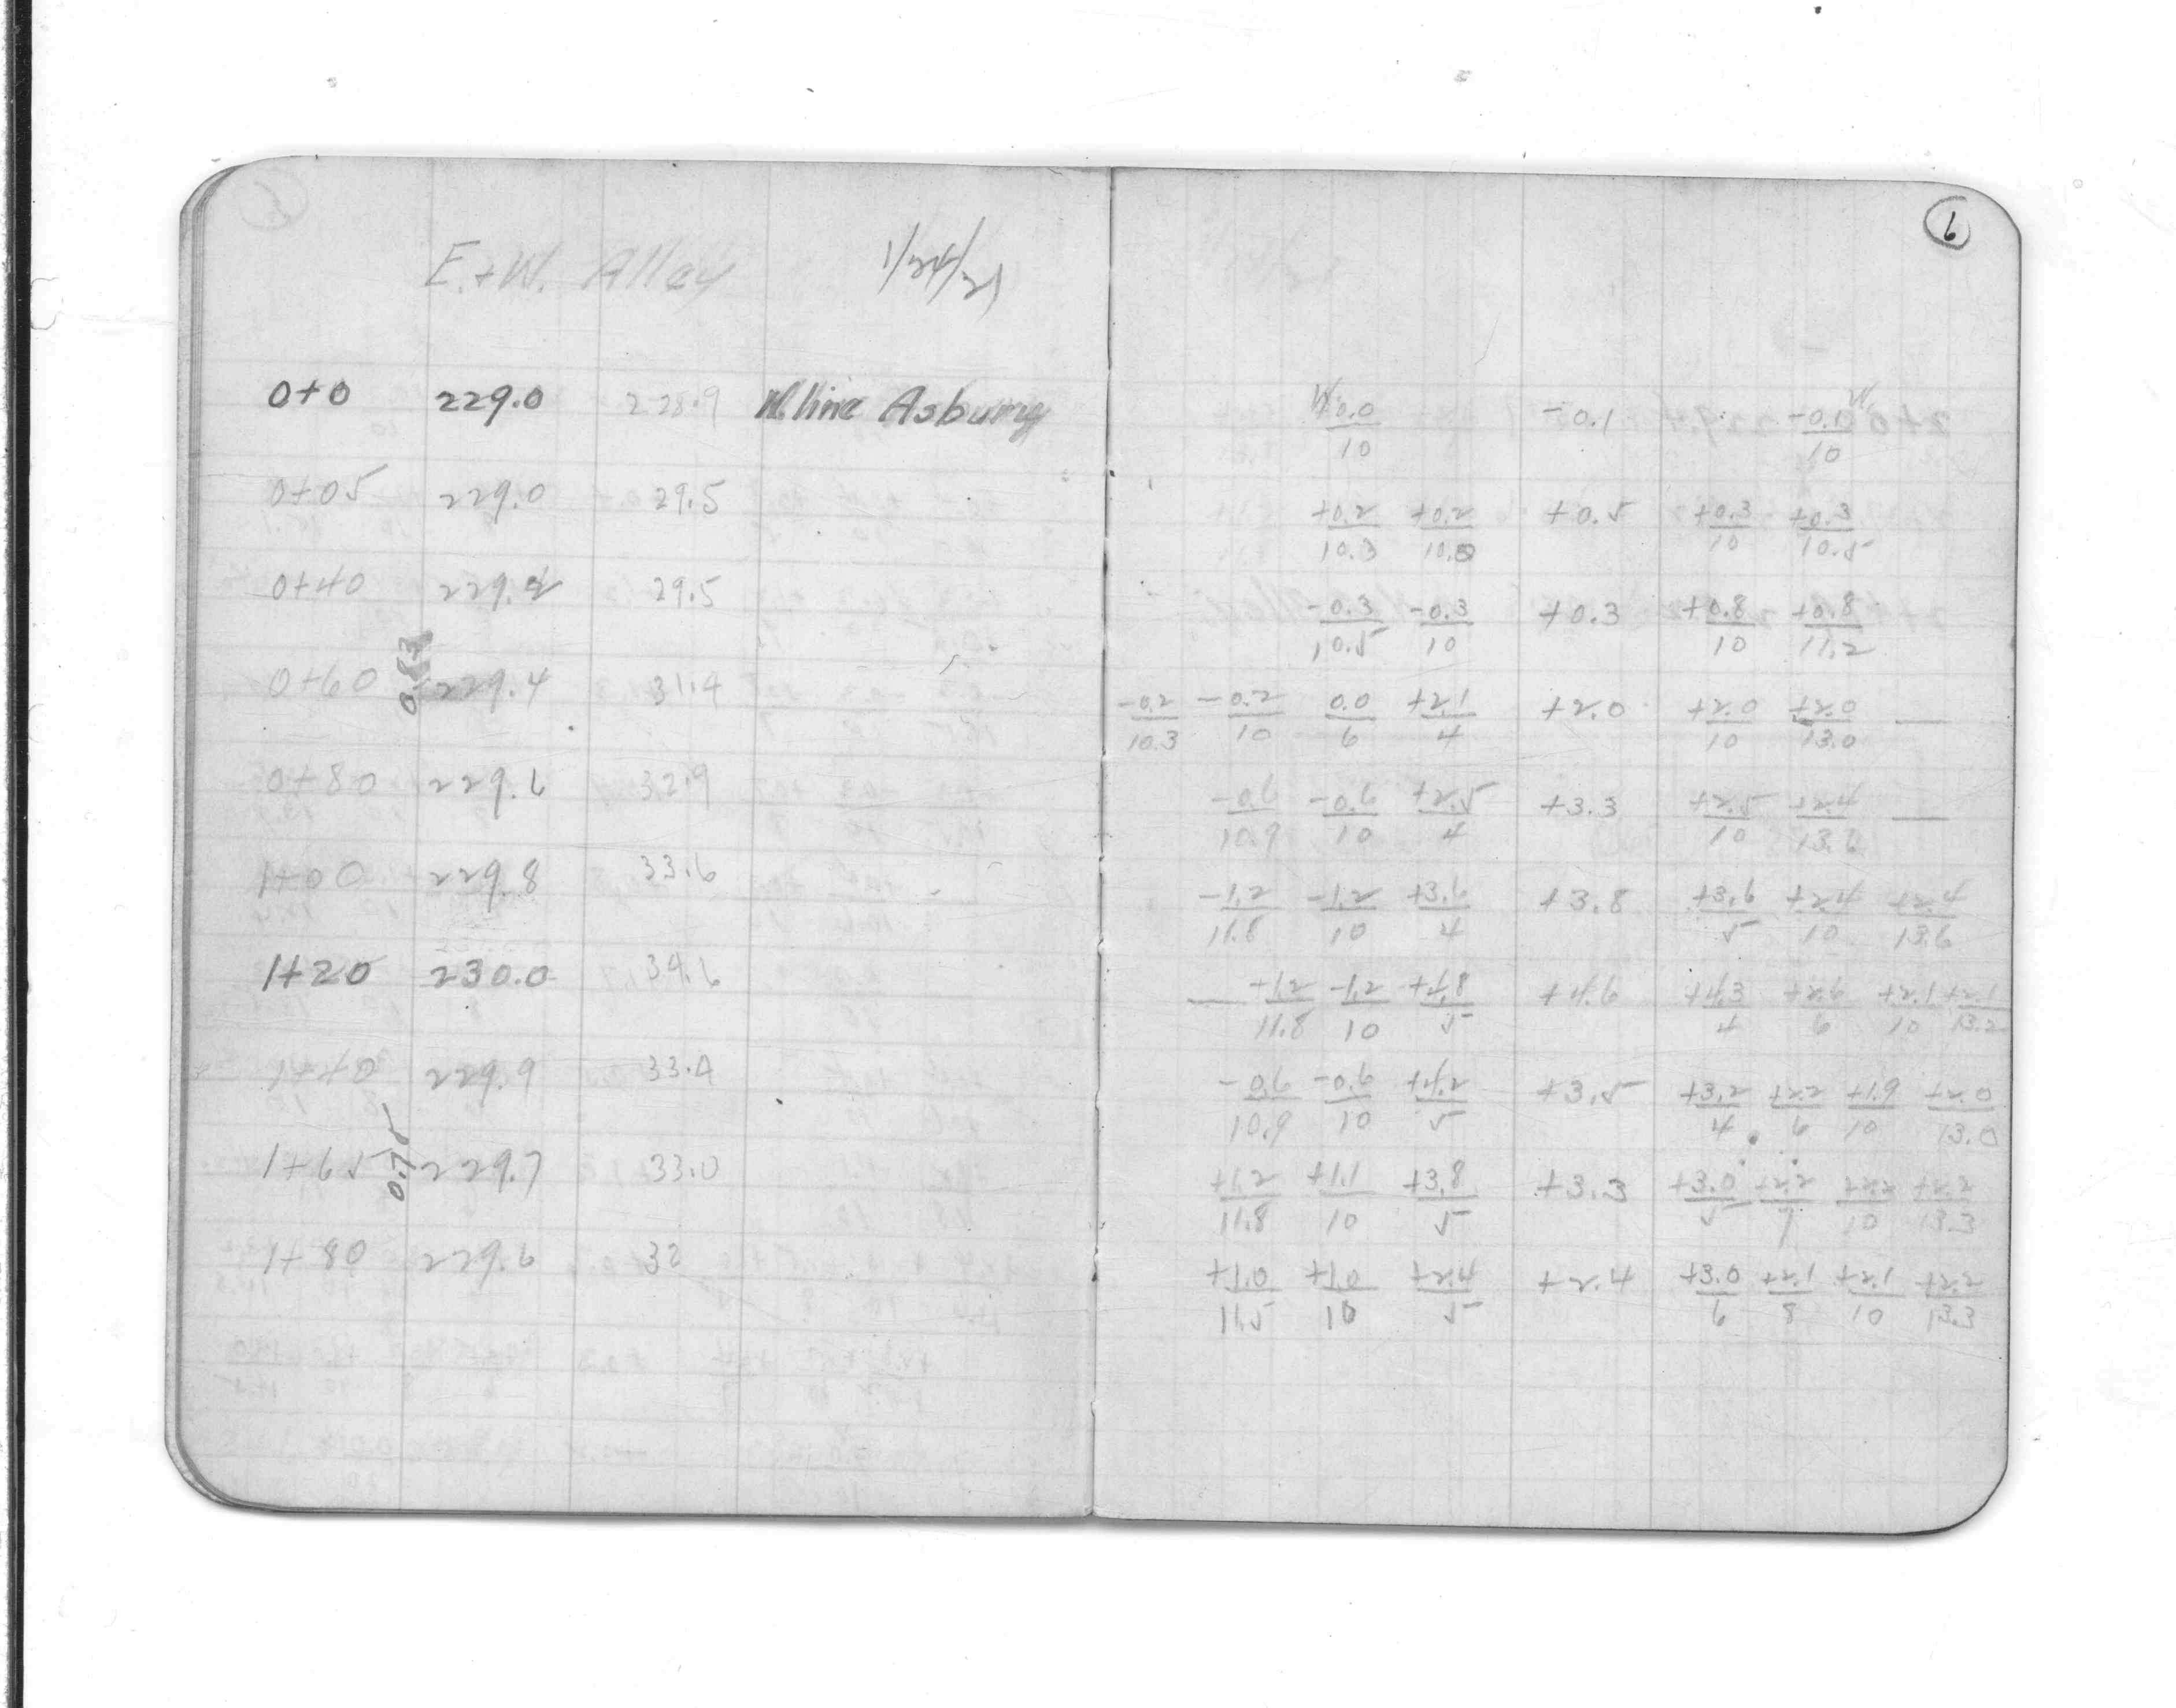 E.+W. Alley 1/24/21
0+0 229.0 228.9 W. line Asbury
0+05 229.0 29.5
0+40 229.2 29.5
0.83
0+60 229.4 31.4
0+80 229.6 32.9
1+00 229.8 33.6
1+20 230.0 34.6
1+40 229.9 33.4
0.75
1+65 229.7 33.0
1+80 229.6 32
6
W W
0.0 -0.1 -0.1
10 10
+0.2 +0.2 +0.5 +0.3 +0.3
10.3 10.0 10 10.5
-0.3 -0.3 +0.3 +0.8 +0.8
10.5 10 10 11.2
-0.2 -0.2 0.0 +2.1 +2.0 +2.0 +2.0 —
10.3 10 6 4 10 13.0
-0.6 -0.6 +2.5 +3.3 +2.5 +2.4 —
10.9 10 4 10 13.6
-1.2 -1.2 +3.6 +3.8 +3.6 +2.4 +2.4
11.8 10 4 5 10 13.6
— -1.2 -1.2 +4.8 +4.6 +4.3 +2.6 +2.1 +2.1
11.8 10 5 4 6 10 13.2
-0.6 -0.6 +4.2 +3.5 +3.2 +2.2 +1.9 +2.0
10.9 10 5 4 6 10 13.0
+1.2 +1.1 +3.8 +3.3 +3.0 +2.2 +2.2 +2.2
11.8 10 5 5 7 10 13.3
+1.0 +1.0 +2.4 +2.4 +3.0 +2.1 +2.1 +2.2
11.5 10 5 6 8 10 13.3